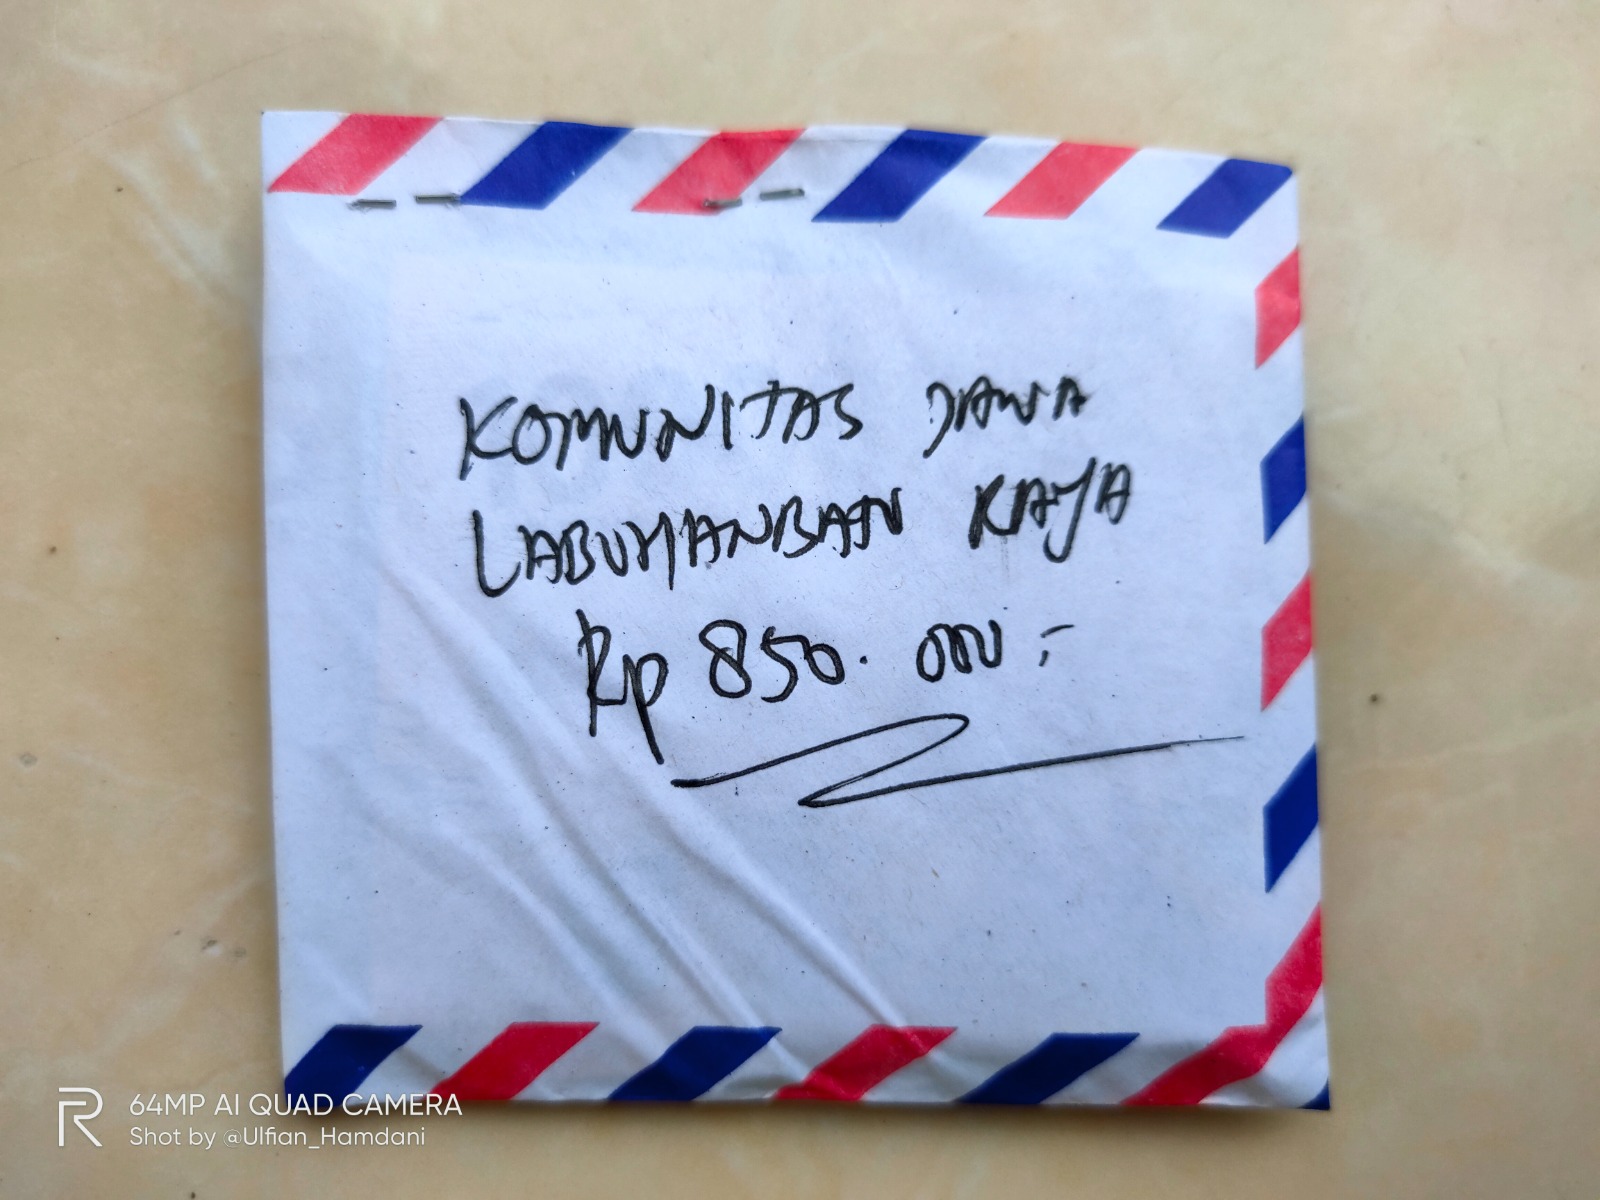 KOMUNITAS JAWA
LABUHANBAN RAYA
Rp 850.000:-
64MP AI QUAD CAMERA
Shot by @Ulfian_Hamdani